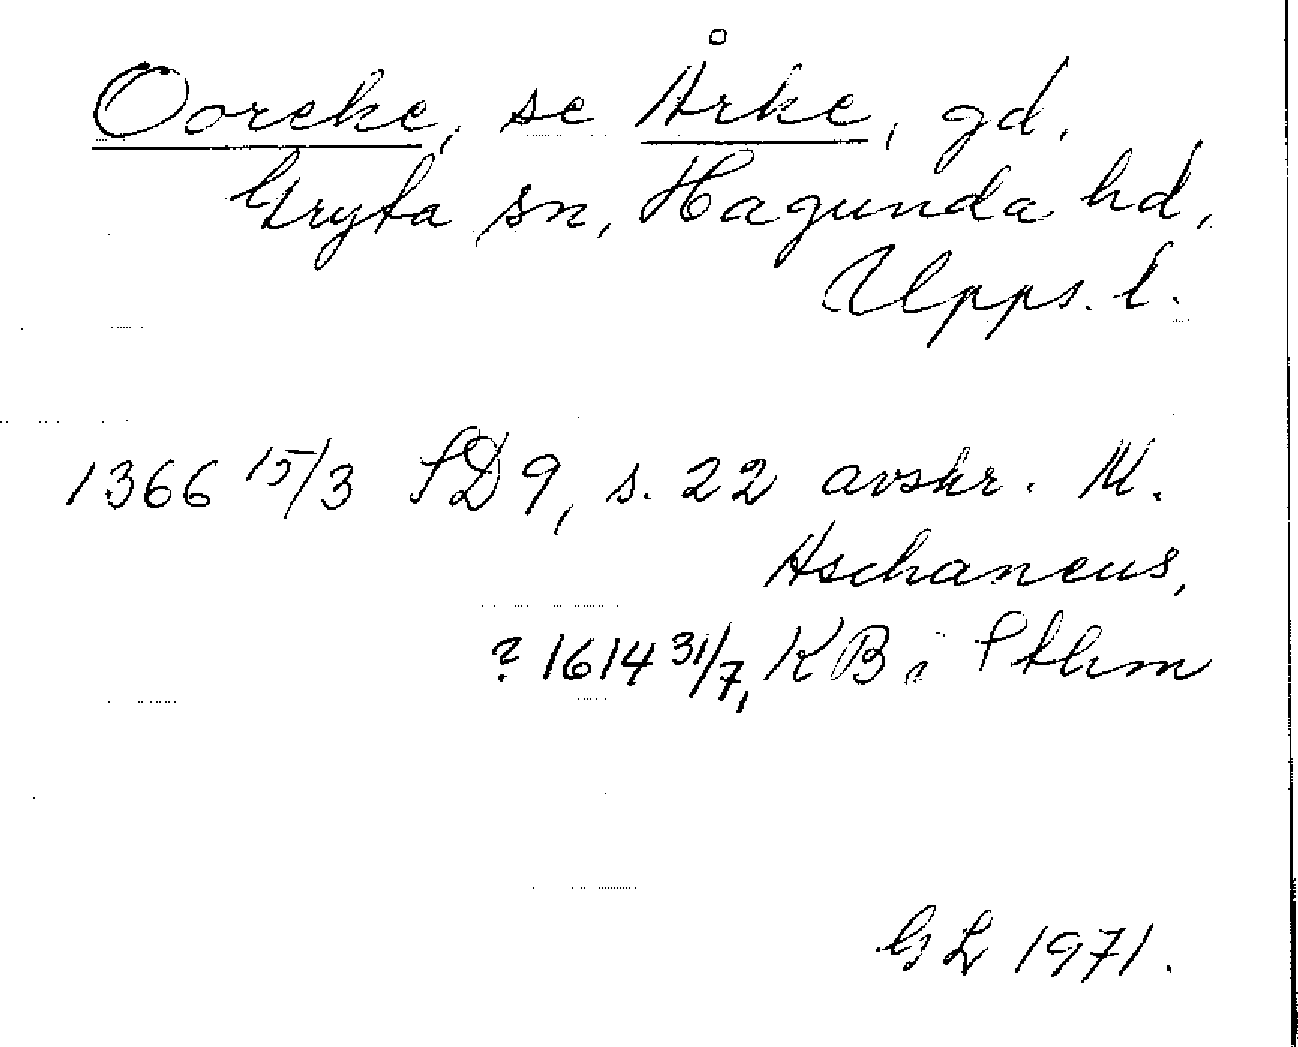 Ooreke, se Årke, gd.
Gryta sn, Hagunda hd,
Upps. l.
1366 15/3 SD 9, s. 22 avskr. M.
Aschaneus,
? 1614 31/7, KB i Sthlm
GL 1971.